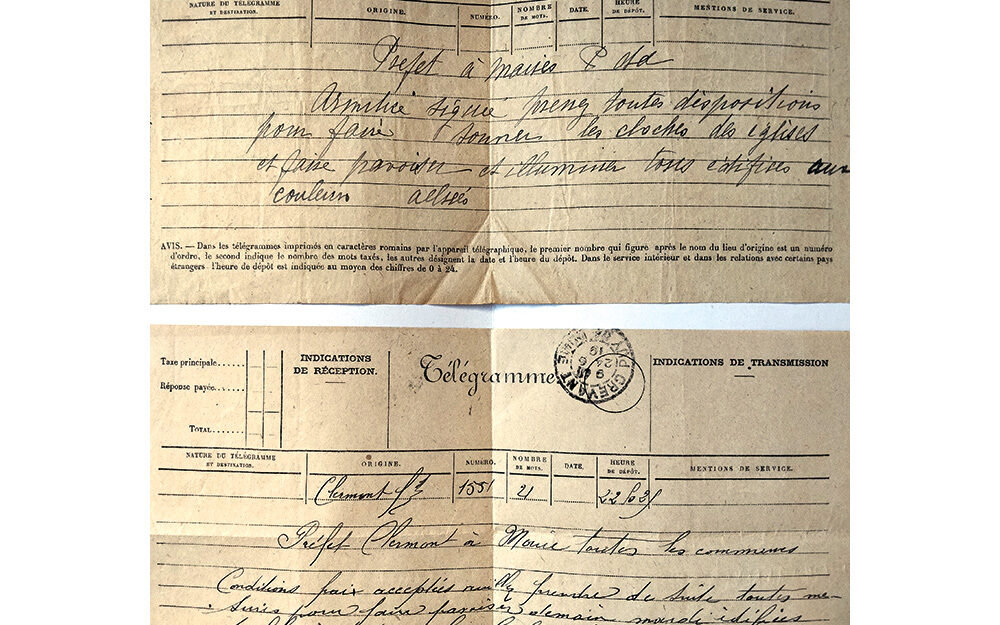 NATURE DU TÉLÉGRAMME ET DESTINATION. ORIGINE. NUMÉRO. NOMBRE DE MOTS. DATE. HEURE DE DÉPÔT. MENTIONS DE SERVICE.
Préfet à Maires P de d
Armistice signée prenez toutes dispositions
pour faire sonner les cloches des églises
et faire pavoiser et illuminer tous édifices aux
couleurs alliées
AVIS. — Dans les télégrammes imprimés en caractères romains par l'appareil télégraphique, le premier nombre qui figure après le nom du lieu d'origine est un numéro
d'ordre, le second indique le nombre des mots taxés, les autres désignent la date et l'heure du dépôt. Dans le service intérieur et dans les relations avec certains pays
étrangers l'heure de dépôt est indiquée au moyen des chiffres de 0 à 24.
Taxe principale......
Réponse payée...
TOTAL.......
INDICATIONS
DE RÉCEPTION.
Télégramme
GREVANT
INDICATIONS DE TRANSMISSION
NATURE DU TÉLÉGRAMME ET DESTINATION. ORIGINE. NUMÉRO. NOMBRE DE MOTS. DATE. HEURE DE DÉPÔT. MENTIONS DE SERVICE.
Clermont Fd 1551 21 22h25
Préfet Clermont à Maire toutes les communes
Conditions paix acceptées prendre de suite toutes me-
sures pour faire pavoiser demain mardi édifices